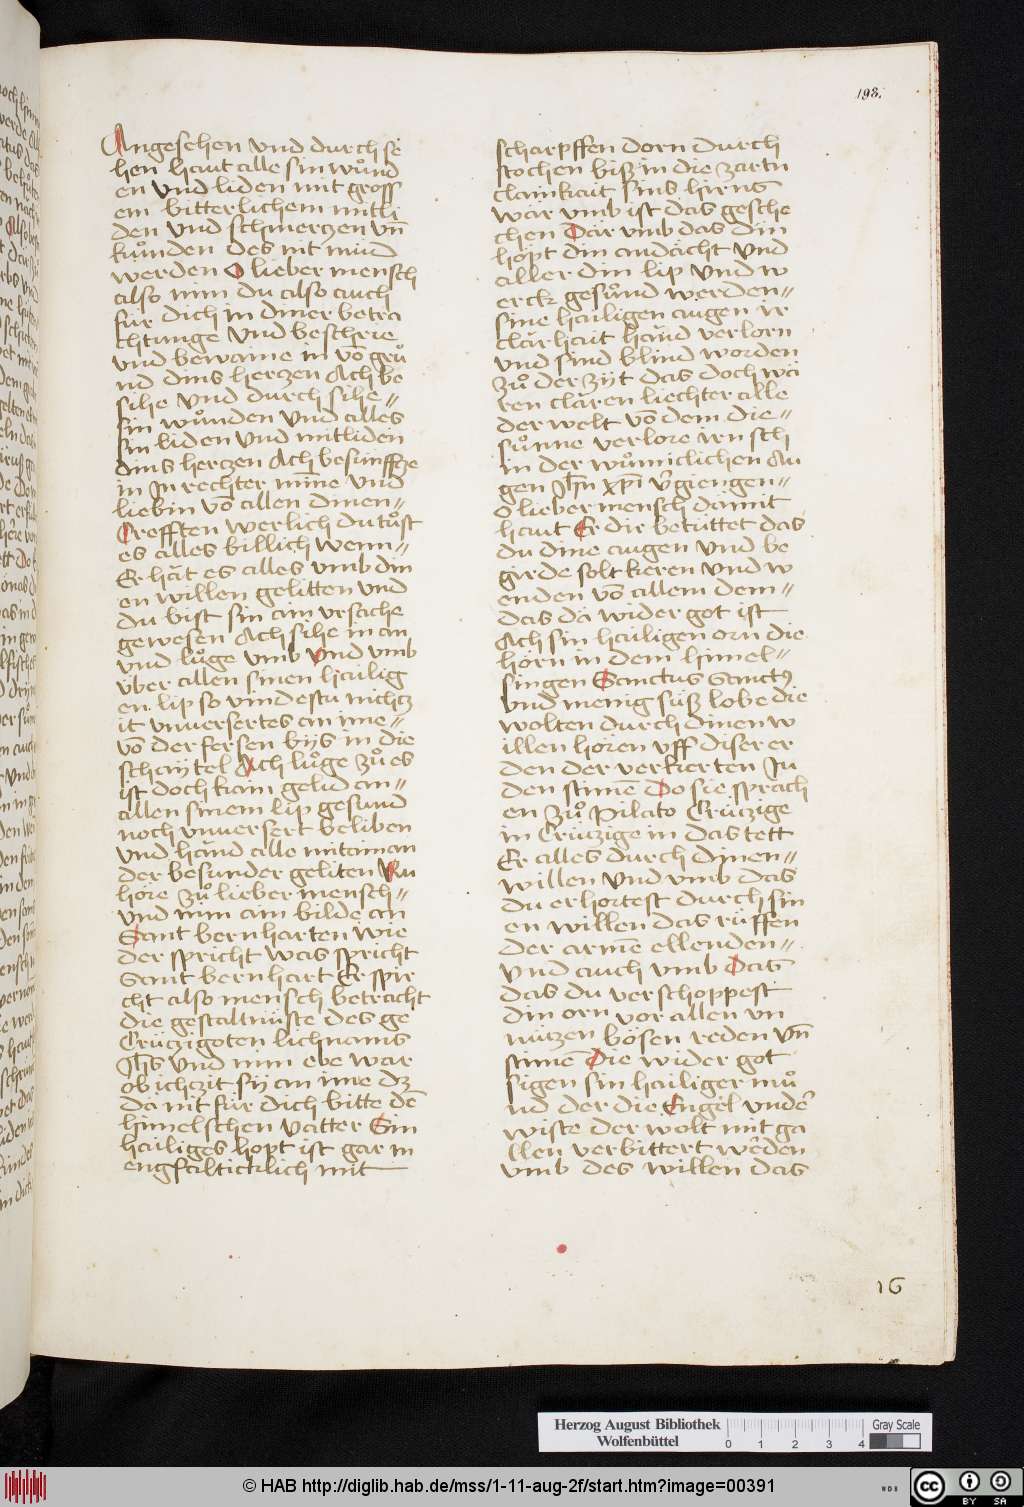 193.
Angesehen vnd durch se
hen haut alle sin wůnd
en vnd liden mit gross
em bitterlichem mitli
den vnd schmerczen vn̄
kůnden des nit můd
werden O lieber mensch
also nim du also auch
für dich in diner betra
chtunge vnd beschrie
vnd bewaine in vō grů
nd dins herczen Ach be
sihe vnd durch sihe //
sin wůnden vnd alles
sin liden vnd mitliden
dins herczen Ach besünffcze
in In rechter mīne vnd
liebin vō allen dinen //
Crefften werlich du tůst
es alles billich wenn //
Er hāt es alles vmb din
en willen gelitten vnd
du bist sin ain vrsache
gewesen Ach sihe in an
vnd lůge vmb vnd vmb
über allen sinen hailig
en lip so vindestu nichcz
it vnuersertes an ime //
vō der fersen bijs in die
schaytel Ach lůge zů es
ist doch kain gelid an //
allen sinem lip gesund
noch vnuersert beliben
vnd hānd alle mitainan
der besunder geliten Nu
höre zů lieber mensch //
vnd nim ain bilde an
Sant bernharten wie
der spricht was spricht
Sant bernhart Er spri
cht also mensch betracht
die gestaltnüste des ge
Crüczigoten lichnams
Jh̄s vnd nim ebe war
ob ichczit sij an ime dz
da nit für dich bitte dē
himelschen vatter Sin
hailiges hopt ist gar in
engsaltticklich mit
scharpffen dorn durch
stochen bisz in die zartn
clainkait sins hirns
wār vmb ist das gesche
chen Dār vmb das din
hopt din andācht vnd
aller din lip vnd w
erck gesůnd werden //
sine hailigen augen ir
clārhait hānd verlorn
vnd sind blind worden
zů der zijt das doch wā
ren clāren liechter alle
der welt vō dem die //
sůnne verlore irn sch
in der wůnniclichen Au
gen Jh̄n xp̄i v̄giengen //
O lieber mensch dāmit
haut Er dir betüttet das
du dine augen vnd be
girde solt keren vnd w
enden vō allem dem //
das da wider got ist
Ach sin hailigen orn die
hörn in dem himel //
singen Sanctus Sanctꝰ
vnd menig süsz lobe die
wolten durch dinen w
illen hören vff diser er
den der verkierten Ju
den stimē Do sie sprach
en zů Pilato Crüczige
in Crüczige in das tett
Er alles durch dinen //
willen vnd vmb das
du erhortest durch sin
en willen das rüffen
der armē ellenden //
vnd auch vmb Das
das du verschoppest
din orn vor allen vn
nüczen bösen reden vn̄
stimē Die wider got
sigen sin hailiger mů
nd der die Engel vnder
wiste der wolt mit ga
llen verbittert werden
vmb des willen das
16
Herzog August Bibliothek
Wolfenbüttel
0 1 2 3 4
Gray Scale
© HAB http://diglib.hab.de/mss/1-11-aug-2f/start.htm?image=00391
WDB
cc BY SA